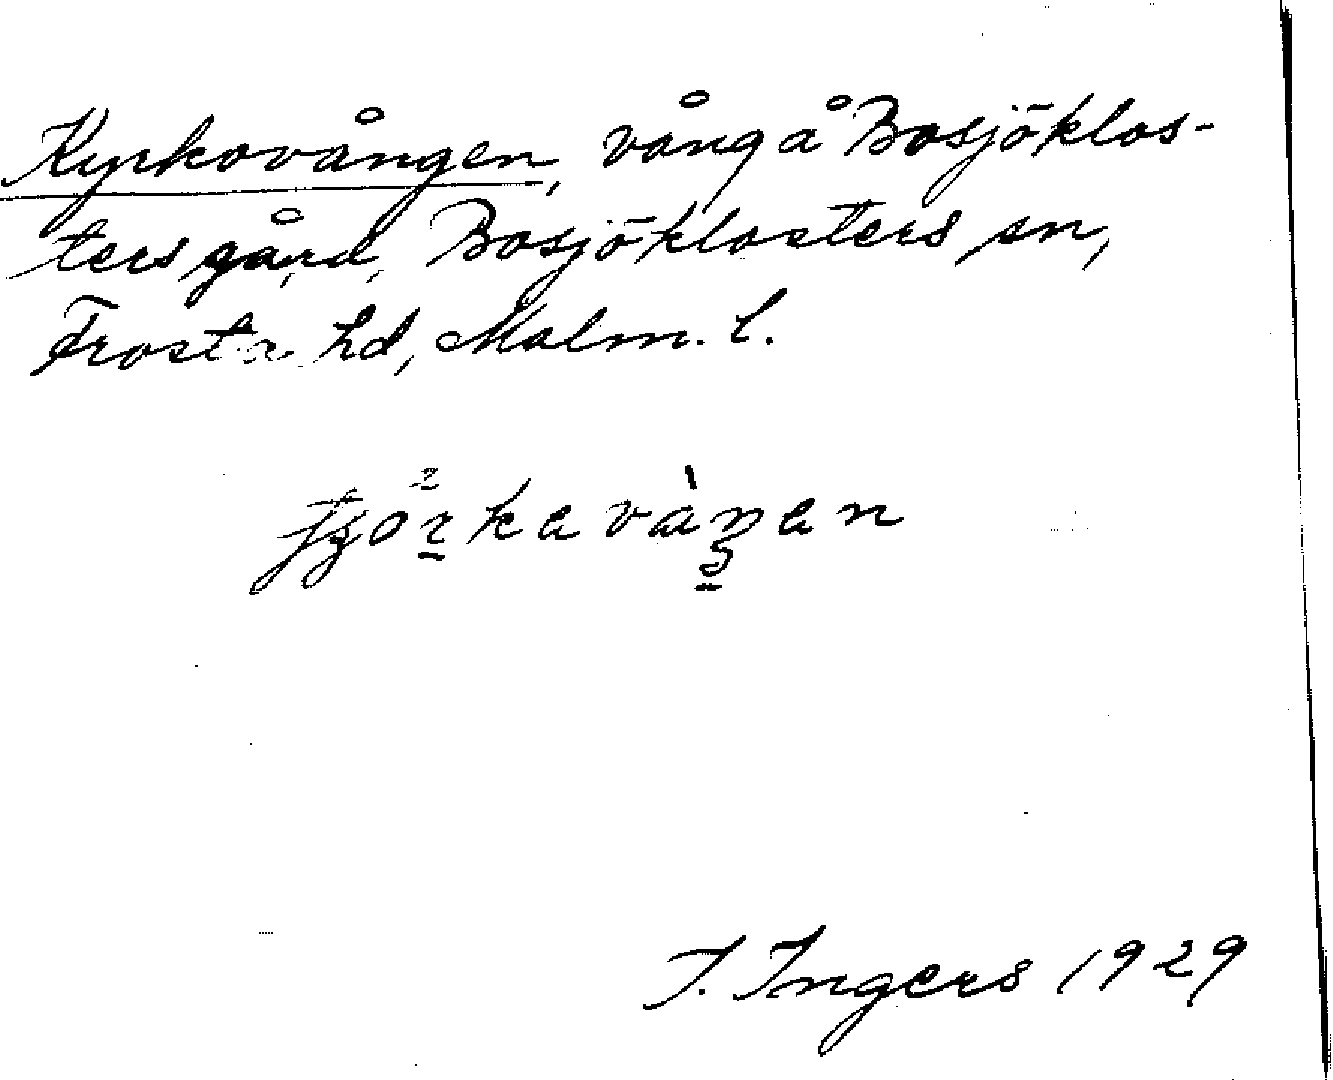 Kyrkovången, vång å Bosjöklos-
ters gård, Bosjöklosters sn,
Frosta hd, Malm. l.
I. Ingers 1929